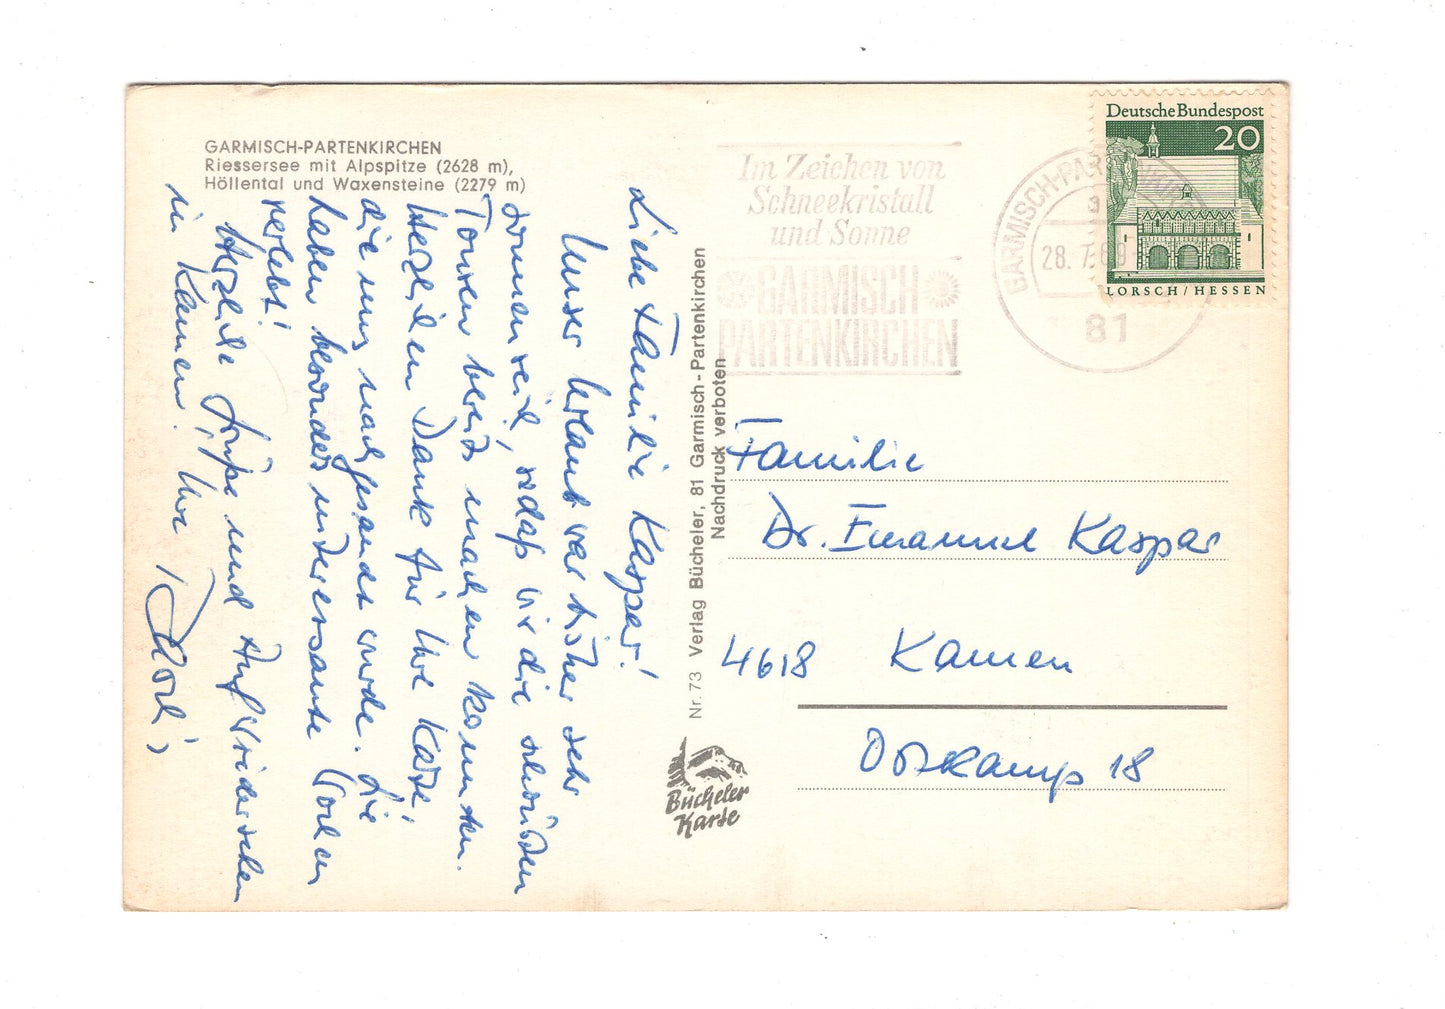 GARMISCH-PARTENKIRCHEN
Riessersee mit Alpspitze (2628 m),
Höllental und Waxensteine (2279 m)
Liebe Familie Kaspar!
Unser Urlaub war bisher sehr
sonnenreich, sodaß wir die schönsten
Touren bereits machen konnten.
Herzlichen Dank für Ihre Karte,
die uns nachgesandt wurde. Sie
haben besonders interessante Wochen
verlebt!
Herzliche Grüße und Auf Wiedersehen
in Kamen! Ihre
Nr. 73 Verlag Bücheler, 81 Garmisch-Partenkirchen
Nachdruck verboten
Bücheler
Karte
Im Zeichen von
Schneekristall
und Sonne
GARMISCH
PARTENKIRCHEN
GARMISCH-PARTENKIRCHEN
a
28. 7. 69
81
Deutsche Bundespost
20
LORSCH/HESSEN
Familie
Dr. Emanuel Kaspar
4618 Kamen
Ostkamp 18